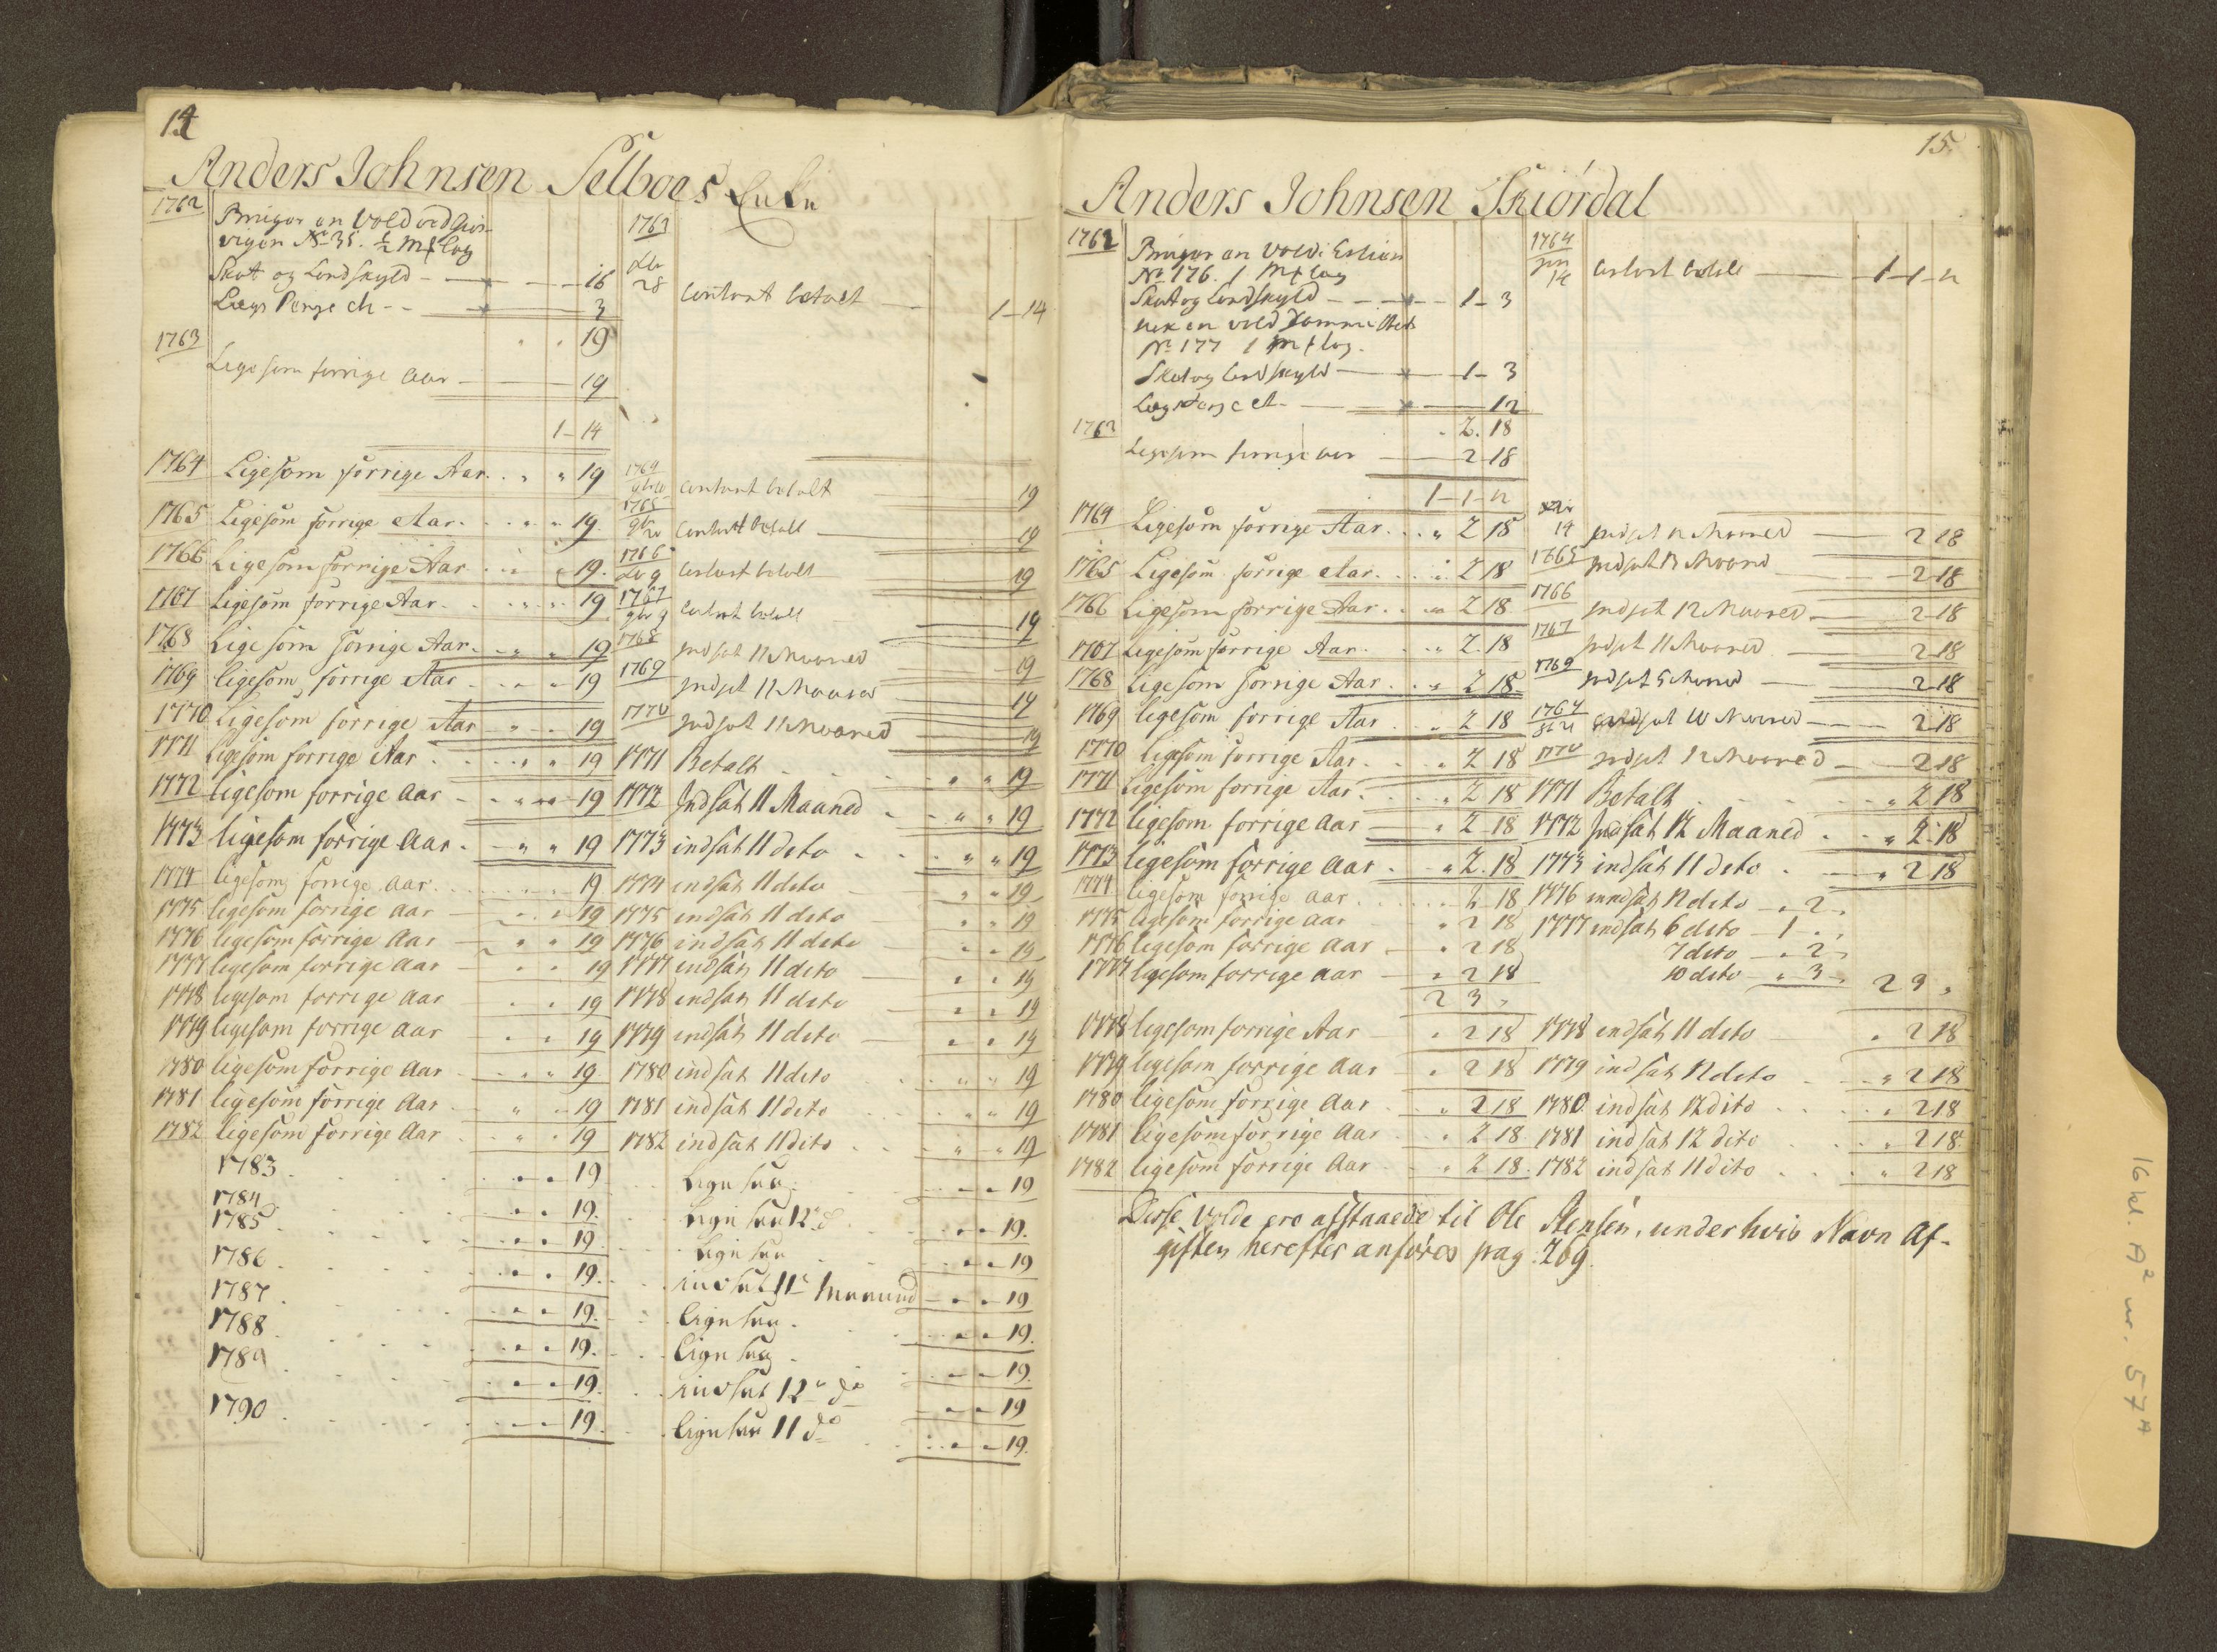 14
Anders Johnsen Selboes Enke
1762 Bruger en Vold ved
vigen No 35. ½ m
Skat og Landskyld - - - 16
Lægs Penge - - 3
" " 19
1763 Lige som forrige Aar - 19
1-14
1764 Ligesom forrige Aar. " " 19
1765 Ligesom forrige Aar. " " 19.
1766 Ligesom forrige Aar " " 19.
1767 Ligesom forrige Aar. " " 19
1768 Lige som forrige Aar. " " 19
1769 ligesom forrige Aar " " 19
1770 Ligesom forrige Aar " " 19
1771 Ligesom forrige Aar " " 19
1772 ligesom forrige Aar " " 19
1773 ligesom forrige Aar. " " 19
1774 ligesom forrige Aar. 19
1775 ligesom forrige Aar " " 19
1776 ligesom forrige Aar " " 19
1777 ligesom forrige Aar " " 19
1778 ligesom forrige Aar " " 19
1779 ligesom forrige Aar " " 19
1780 ligesom forrige Aar " " 19
1781 ligesom forrige Aar " " 19
1782 ligesom forrige Aar " " 19
1783 . " " 19
1784 . " " 19.
1785 . " " 19
1786 . " " 19.
1787 . " " 19.
1788 . " " 19.
1789 . " " 19.
1790 . " " 19.
1763
28 Contant betalt - 1-14
1764 Contant betalt 19
1765 Contant betalt 19
1766 Contant betalt 19
1767 Contant betalt 19
1768 Indsat 11 Maaned 19
1769 Indsat 11 Maaned 19
1770 Indsat 11 Maaned 19
1771 Betalt " " 19
1772 Indsat 11 Maaned " " 19
1773 indsat 11 dito " " 19
1774 indsat 11 dito " " 19
1775 indsat 11 dito " " 19
1776 indsat 11 dito " " 19
1777 indsat 11 dito " " 19
1778 indsat 11 dito " " 19
1779 indsat 11 dito " " 19
1780 indsat 11 dito " " 19
1781 indsat 11 dito " " 19
1782 indsat 11 dito " " 19
Lige saa " " 19
lige saa 12 d " " 19.
Lige saa " " 19
indsat 11 Maaned " " 19
lige saa " " 19.
lige saa " " 19
indsat 12 do " " 19
lige saa 11 do " " 19.
15.
Anders Johnsen Skiórdal
1762 Bruger en Vold i
No 176. 1 m
Skat og Landskyld - - - 1-3
nok en vold
No 177 1 m
Skat og Landskyld - 1-3
Lægspenge - 12
" 2.18
1763 Ligesom forrige Aar 2-18
1-1-12
1764 Ligesom forrige Aar. " 2 18
1765 Ligesom forrige Aar. " 2 18
1766 Ligesom forrige Aar. " 2 18
1767 Ligesom forrige Aar. " 2.18
1768 Ligesom forrige Aar. " 2 18
1769 ligesom forrige Aar " 2 18
1770 ligesom forrige Aar. " 2 18
1771 Ligesom forrige Aar. " 2 18
1772 ligesom forrige Aar " 2-18
1773 ligesom forrige Aar. " 2.18
1774 ligesom forrige Aar 2-18
1775 ligesom forrige Aar " 2 18
1776 ligesom forrige Aar " 2 18
1777 ligesom forrige Aar " 2 18
2 3 "
1778 ligesom forrige Aar " 2 18
1779 ligesom forrige Aar " 2 18
1780 ligesom forrige Aar " 2 18
1781 ligesom forrige Aar " 2 18
1782 ligesom forrige Aar " 2 18.
1764
14 Contant betalt - 1-1-12
14 Indsat 12 Maaned 2 18
1765 Indsat 12 Maaned 2-18
1766 Indsat 12 Maaned 2-18
1767 Indsat 11 Maaned 2-18
1769 Indsat 5 Maaned 2-18
Indsat 10 Maaned 2-18
1770 Indsat 12 Maaned 2-18
1771 Betalt " 2 18
1772 Indsat 12 Maaned " 2.18
1773 indsat 11 dito " 2 18
1776 inndsat 12 dito " 2 "
1777 indsat 6 dito - 1 " "
7 dito " 2 "
10 dito " 3 " 2 3 "
1778 indsat 11 dito " 2 18
1779 indsat 12 dito " 2 18
1780 indsat 12 dito " 2 18
1781 indsat 12 dito " 2 18
1782 indsat 11 dito " 2 18
Disse Volde ere afstaaede til Ole Stensen, under hvis Navn Af-
giften herefter anføres pag: 269.
16 kl. A² nr. 57 A